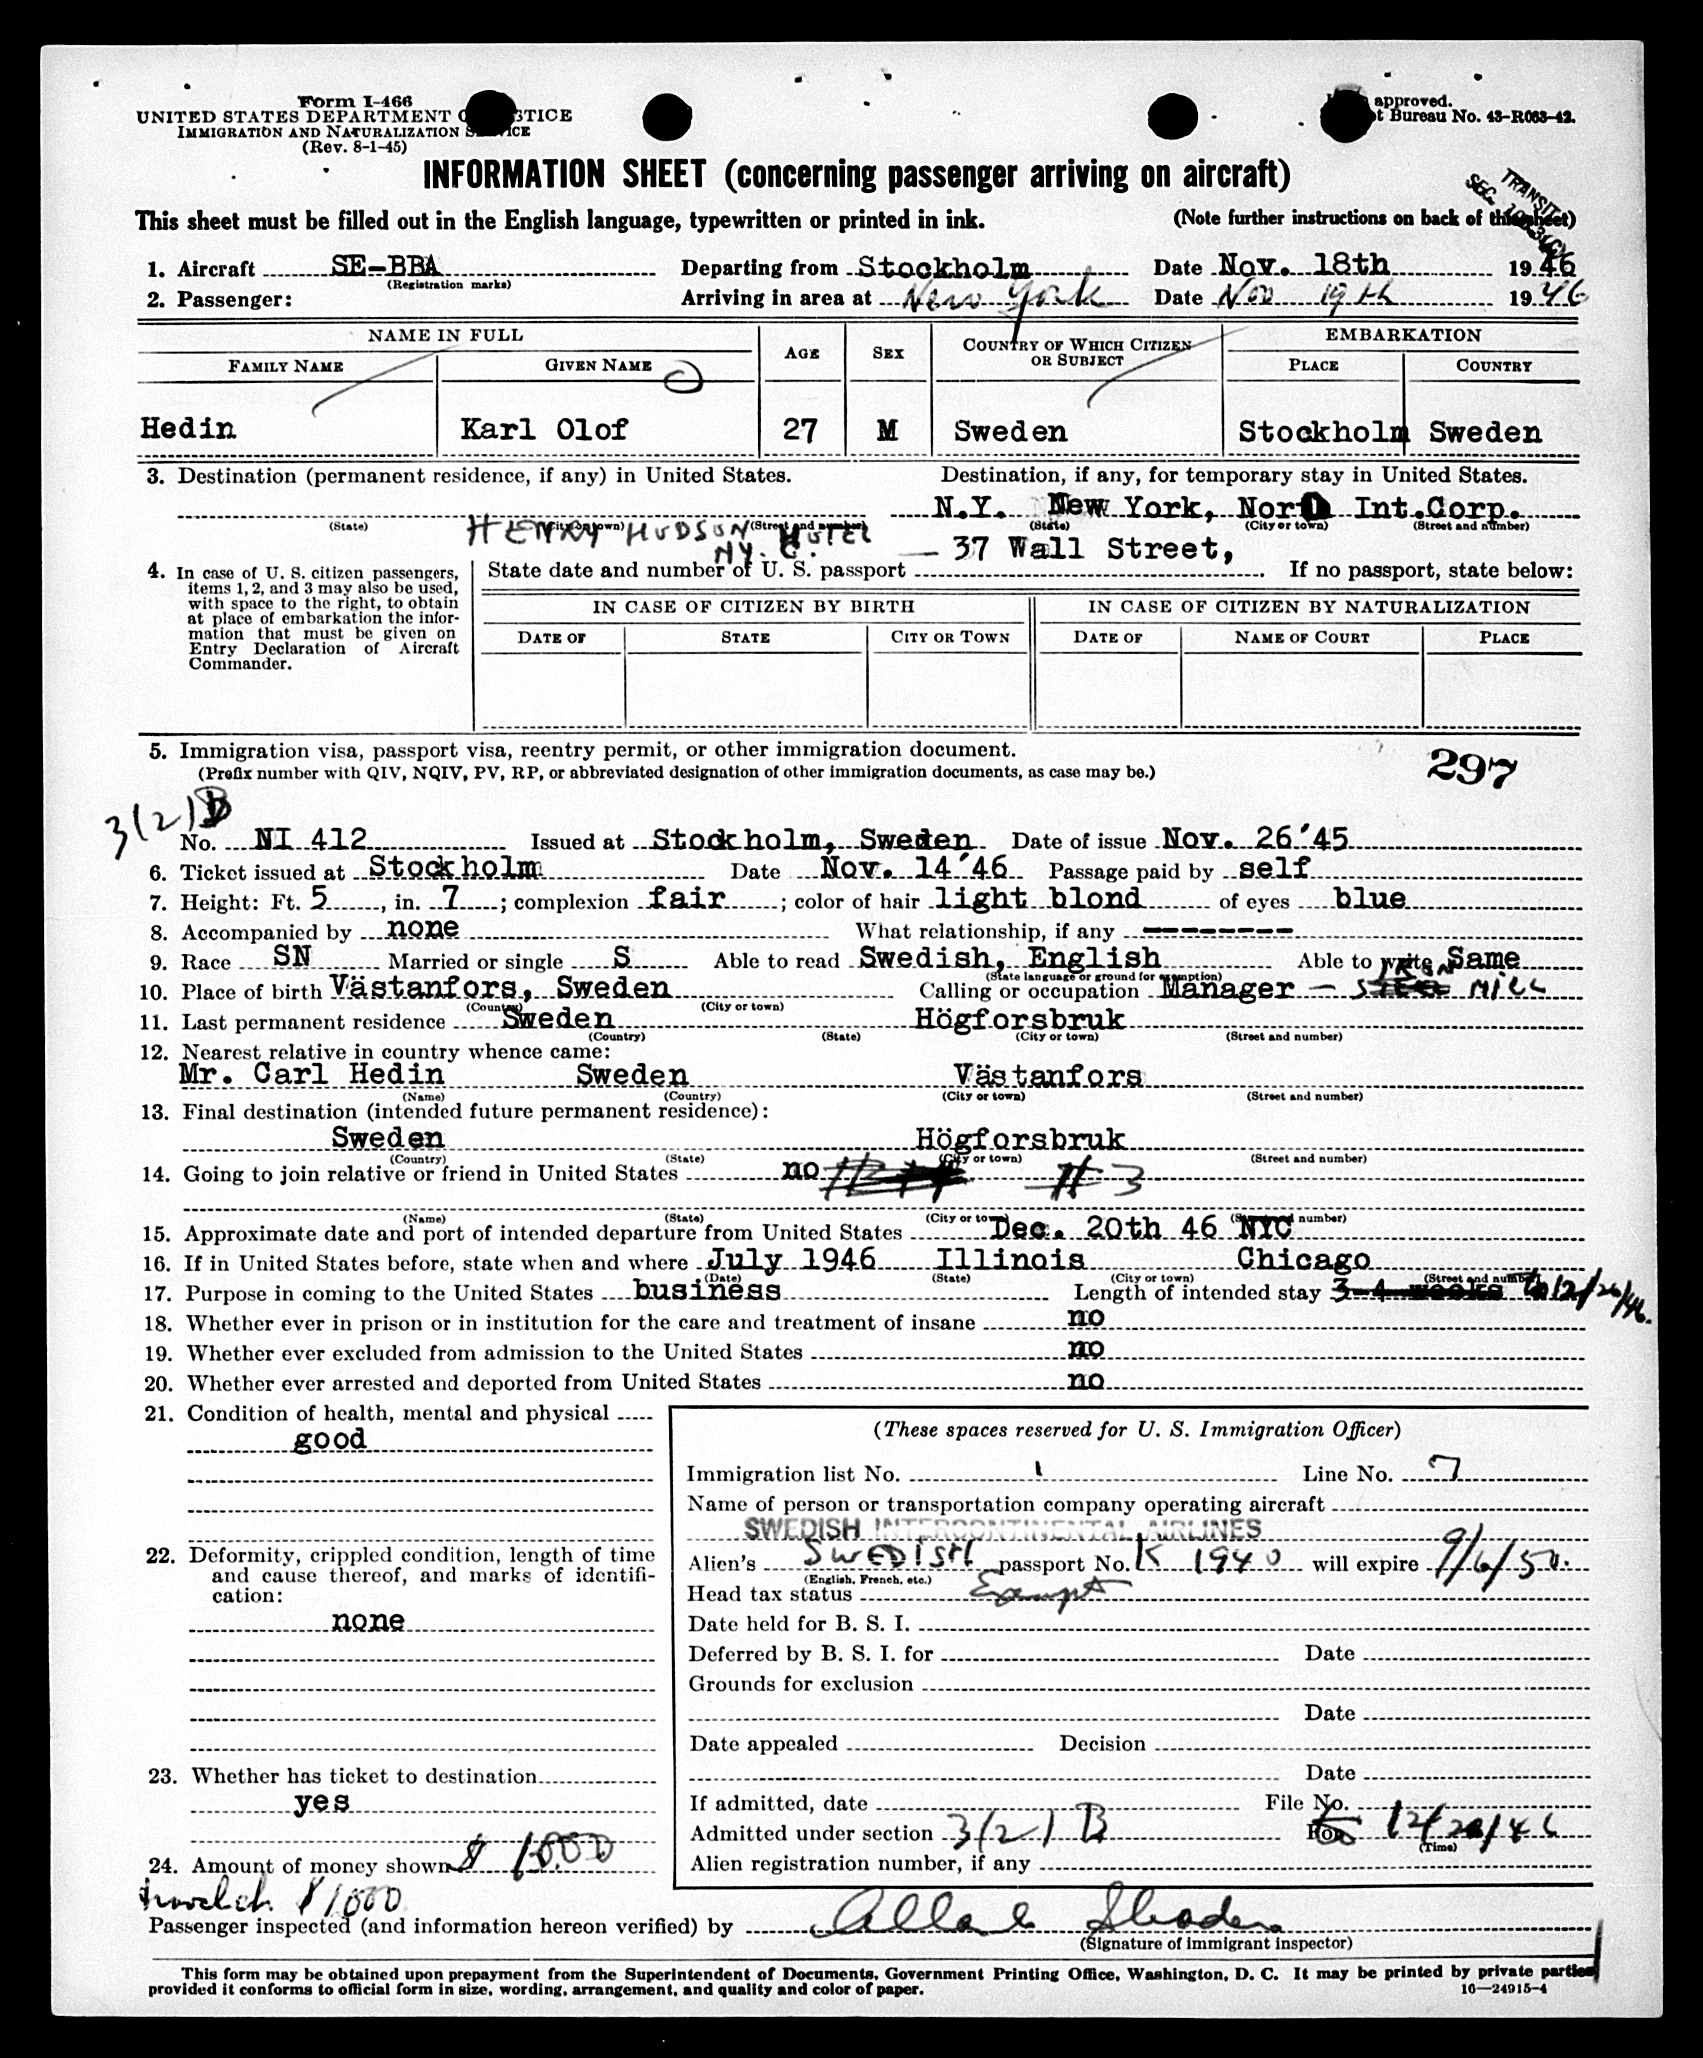 Form I-466
UNITED STATES DEPARTMENT OF JUSTICE
IMMIGRATION AND NATURALIZATION SERVICE
(Rev. 8-1-45)
approved.
Bureau No. 43-R063-42.
INFORMATION SHEET (concerning passenger arriving on aircraft)
This sheet must be filled out in the English language, typewritten or printed in ink. (Note further instructions on back of this sheet)
TRANSIT
SEC.
1. Aircraft SE-BBA Departing from Stockholm Date Nov. 18th 1946
(Registration marks)
2. Passenger: Arriving in area at New York Date Nov 19th 1946
NAME IN FULL AGE SEX COUNTRY OF WHICH CITIZEN OR SUBJECT EMBARKATION
FAMILY NAME GIVEN NAME PLACE COUNTRY
Hedin Karl Olof 27 M Sweden Stockholm Sweden
3. Destination (permanent residence, if any) in United States. Destination, if any, for temporary stay in United States.
N.Y. New York, Nor Int.Corp.
(State) (City or town) (Street and number) (State) (City or town) (Street and number)
HENRY HUDSON HOTEL
N.Y.C. — 37 Wall Street,
4. In case of U. S. citizen passengers, items 1, 2, and 3 may also be used, with space to the right, to obtain at place of embarkation the information that must be given on Entry Declaration of Aircraft Commander.
State date and number of U. S. passport If no passport, state below:
IN CASE OF CITIZEN BY BIRTH IN CASE OF CITIZEN BY NATURALIZATION
DATE OF STATE CITY OR TOWN DATE OF NAME OF COURT PLACE
5. Immigration visa, passport visa, reentry permit, or other immigration document.
(Prefix number with QIV, NQIV, PV, RP, or abbreviated designation of other immigration documents, as case may be.)
297
3(2)B
No. NI 412 Issued at Stockholm, Sweden Date of issue Nov. 26'45
6. Ticket issued at Stockholm Date Nov. 14'46 Passage paid by self
7. Height: Ft. 5, in. 7; complexion fair; color of hair light blond of eyes blue
8. Accompanied by none What relationship, if any ---------
9. Race SN Married or single S Able to read Swedish, English Able to write Same
(State language or ground for exemption)
10. Place of birth Västanfors, Sweden Calling or occupation Manager — IRON MILL
(Country) (City or town)
11. Last permanent residence Sweden Högforsbruk
(Country) (State) (City or town) (Street and number)
12. Nearest relative in country whence came:
Mr. Carl Hedin Sweden Västanfors
(Name) (Country) (City or town) (Street and number)
13. Final destination (intended future permanent residence):
Sweden Högforsbruk
(Country) (State) (City or town) (Street and number)
14. Going to join relative or friend in United States no # 3
(Name) (State) (City or town) (Street and number)
15. Approximate date and port of intended departure from United States Dec. 20th 46 NYC
16. If in United States before, state when and where July 1946 Illinois Chicago
(Date) (State) (City or town) (Street and number)
17. Purpose in coming to the United States business Length of intended stay 3-4 weeks To 12/20/46.
18. Whether ever in prison or in institution for the care and treatment of insane no
19. Whether ever excluded from admission to the United States no
20. Whether ever arrested and deported from United States no
21. Condition of health, mental and physical
good
22. Deformity, crippled condition, length of time and cause thereof, and marks of identification:
none
23. Whether has ticket to destination
yes
24. Amount of money shown $ 1000
$1000
(These spaces reserved for U. S. Immigration Officer)
Immigration list No. 1 Line No. 7
Name of person or transportation company operating aircraft
SWEDISH INTERCONTINENTAL AIRLINES
Alien's SWEDISH passport No. K 1940 will expire 9/6/50.
(English, French, etc.)
Head tax status Exempt
Date held for B. S. I.
Deferred by B. S. I. for Date
Grounds for exclusion
Date
Date appealed Decision
Date
If admitted, date File No.
Admitted under section 3(2) B For 12/20/46
(Time)
Alien registration number, if any
Passenger inspected (and information hereon verified) by
(Signature of immigrant inspector)
This form may be obtained upon prepayment from the Superintendent of Documents, Government Printing Office, Washington, D. C. It may be printed by private parties
provided it conforms to official form in size, wording, arrangement, and quality and color of paper. 16—24915-4